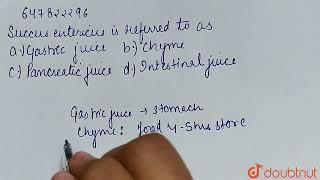 647822296
Succus entericus is referred to as
a) Gastric juice b) Chyme
c) Pancreatic juice d) Intestinal juice
Gastric juice → stomach
Chyme : food
store
doubtnut